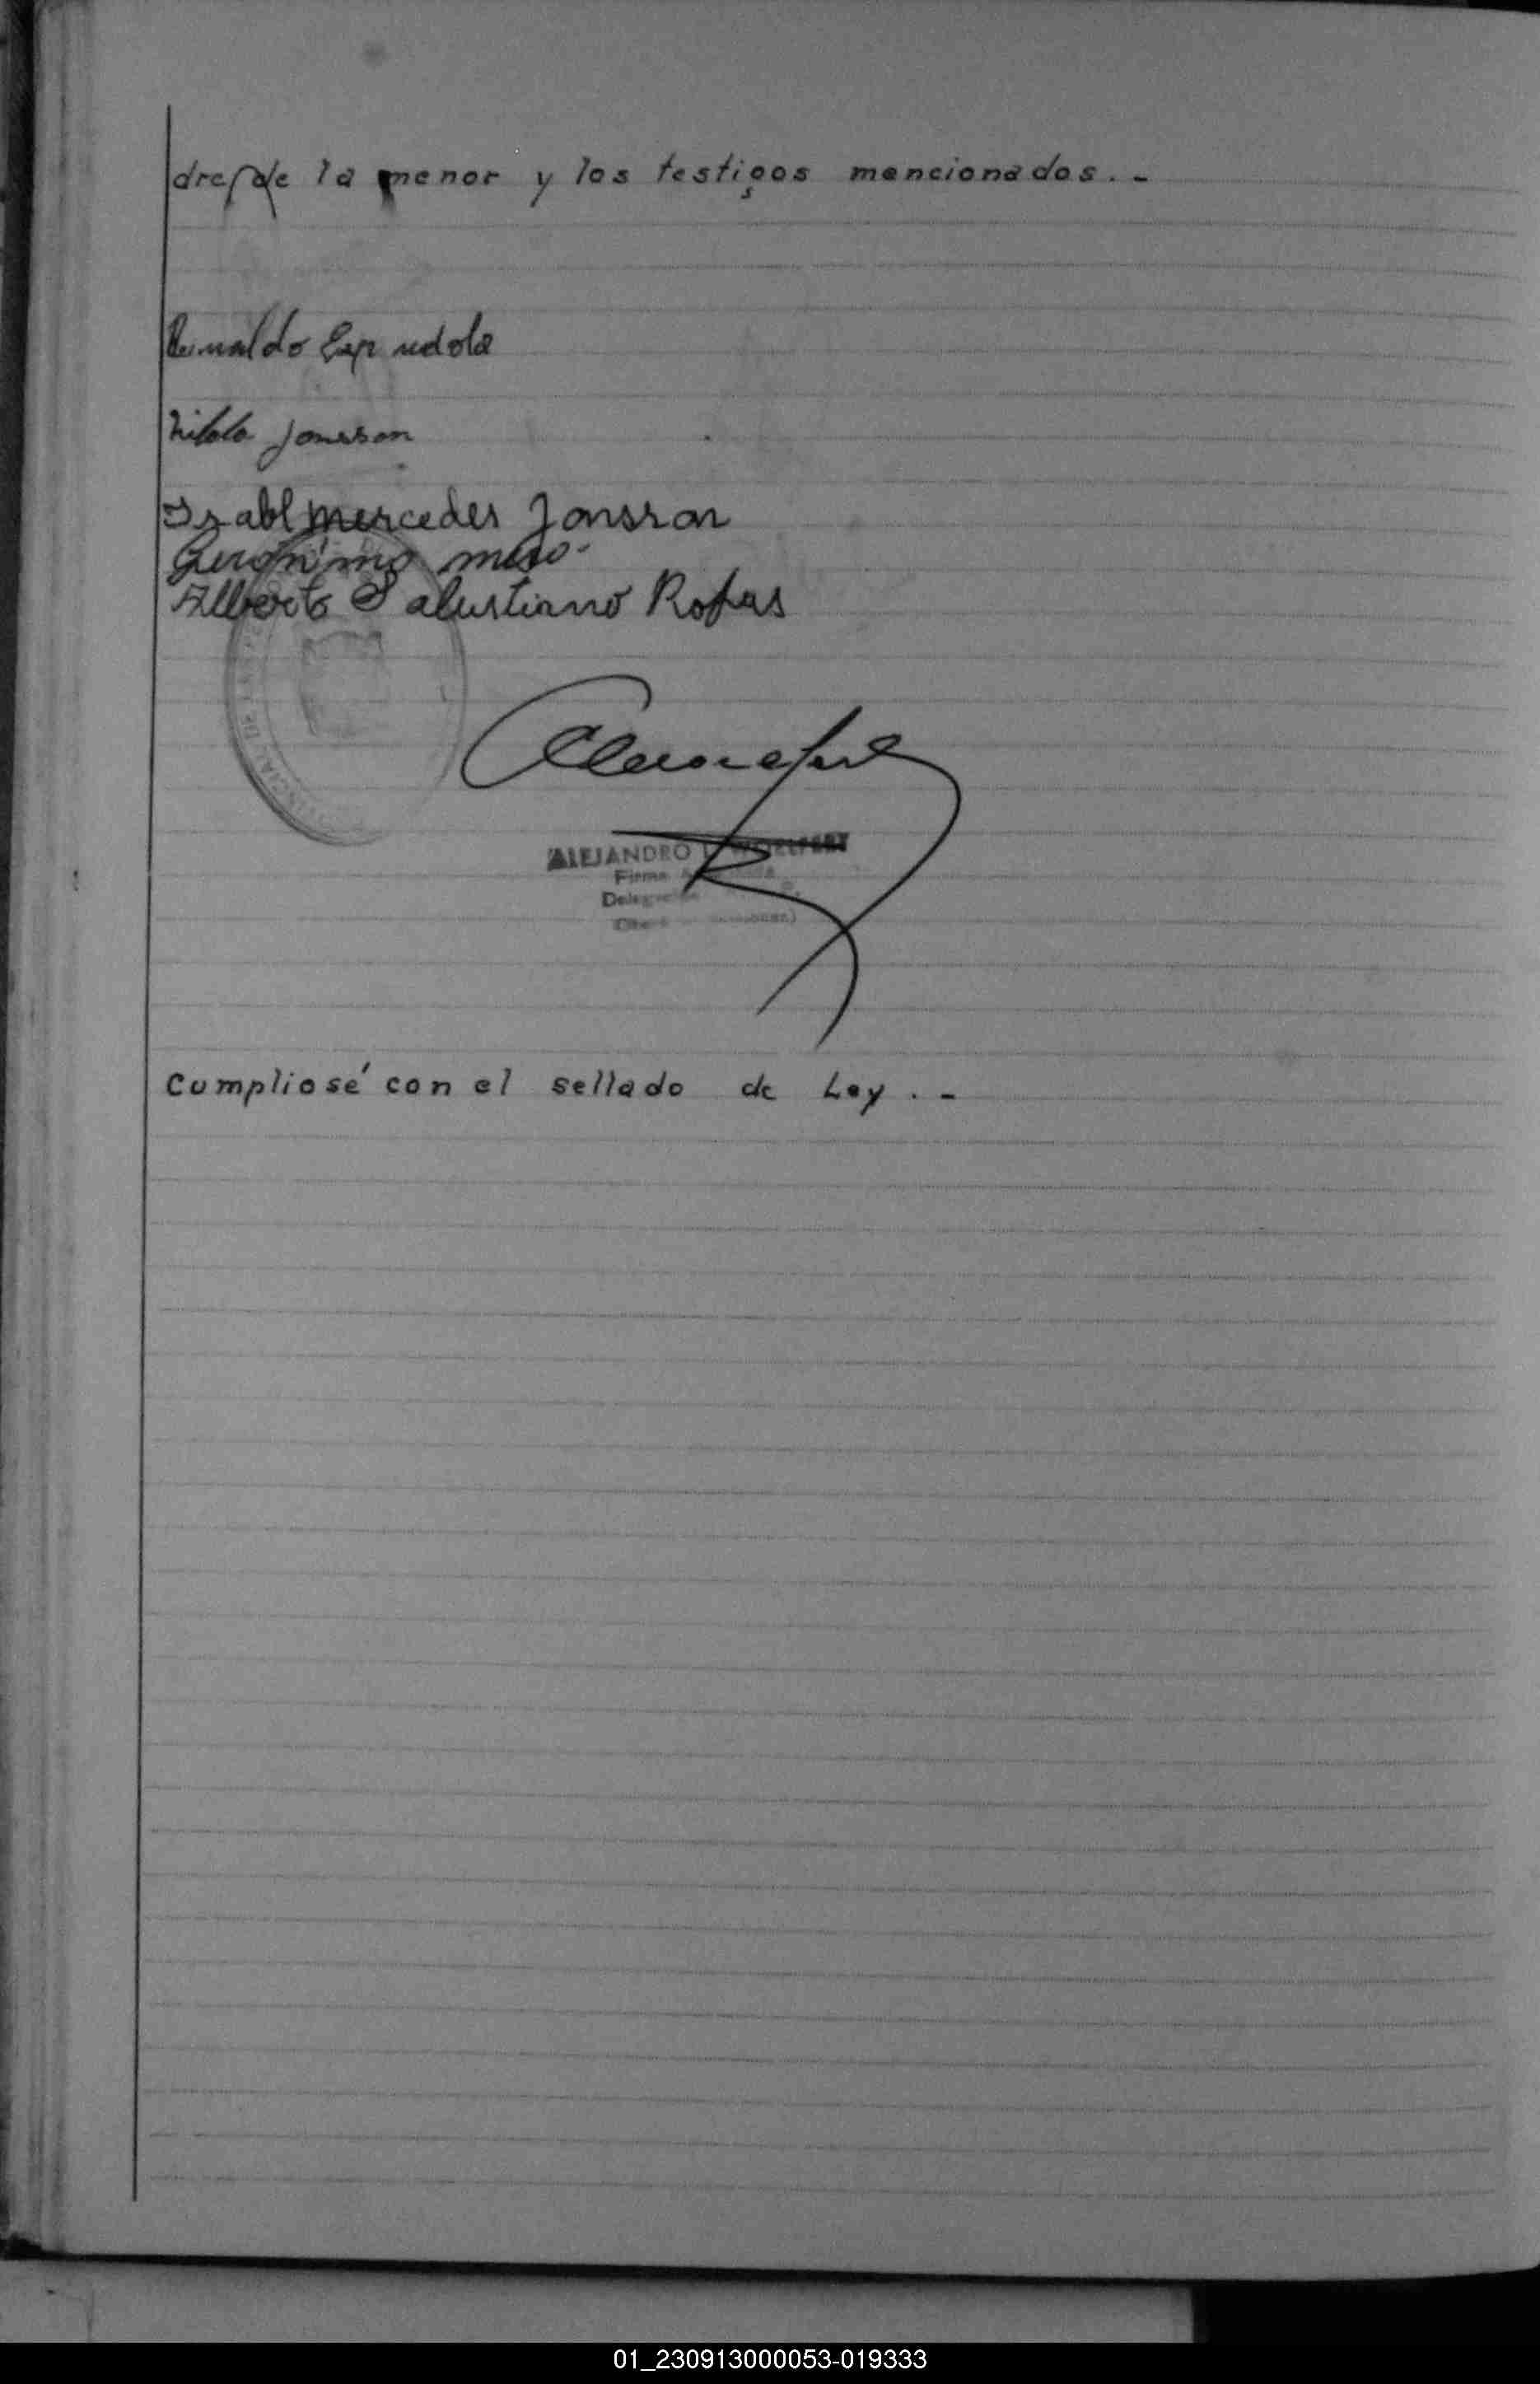 dre, de la menor y los testigos mencionados. -
Reinaldo
Hilda Jonsson
Isabl Mercedes Jonsson
Gerónimo
Alberto Salustiano Rojas
ALEJANDRO
Firma
Cumpliosé con el sellado de Ley. -
01_230913000053-019333